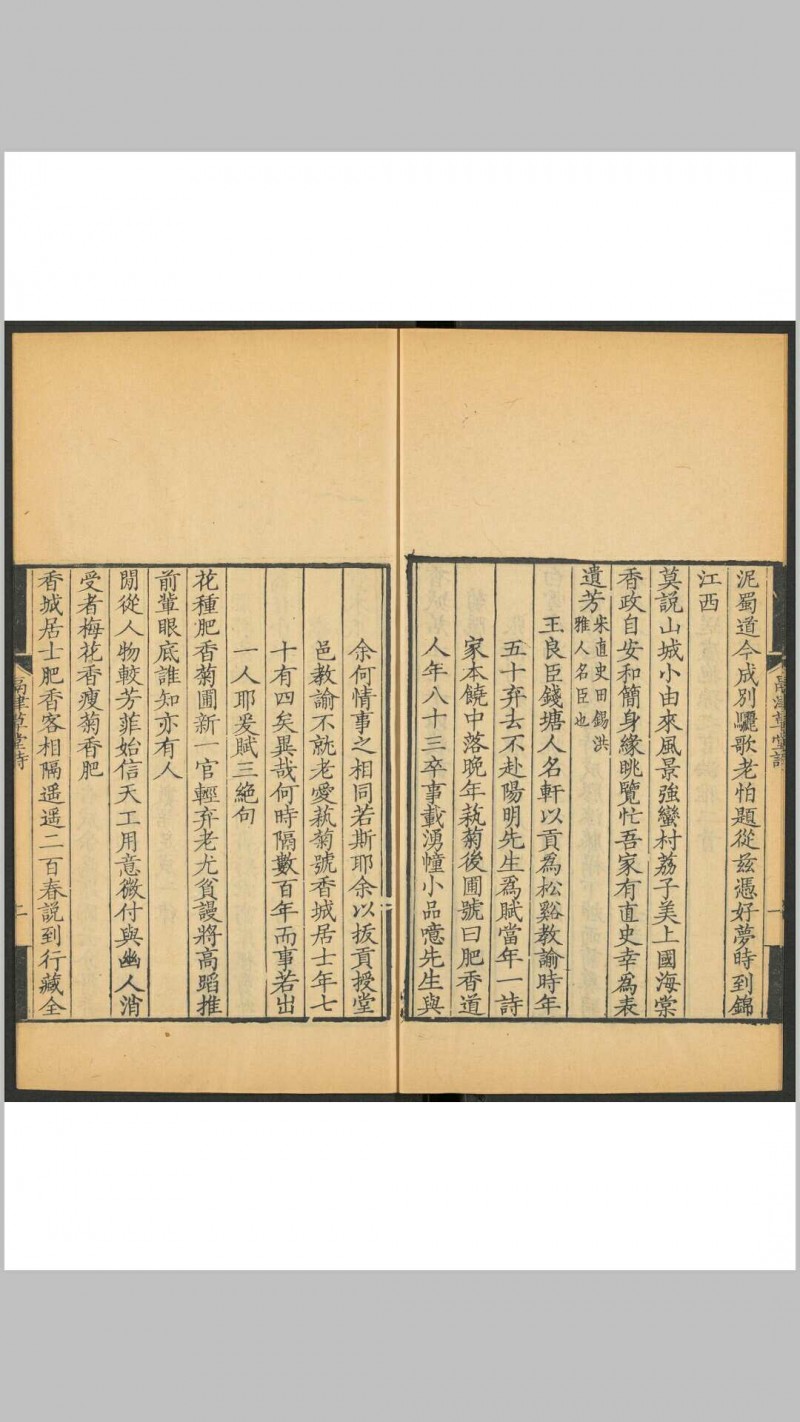 泥蜀道今成别驪歌老怕題從兹憑好夢時到錦
江西
莫説山城小由來風景強蠻村荔子美上國海棠
香政自安和簡身緣眺覽忙吾家有直史幸爲表
遺芳宋直史田錫洪
雅人名臣也
王良臣錢塘人名軒以貢爲松谿教諭時年
五十弃去不赴陽明先生爲賦當年一詩
家本饒中落晚年蓺菊後圃號曰肥香道
人年八十三卒事載湧幢小品噫先生與
余何情事之相同若斯耶余以拔貢授堂
邑教諭不就老愛蓺菊號香城居士年七
十有四矣異哉何時隔數百年而事若出
一人耶爰賦三絶句
花種肥香菊圃新一官輕弃老尤貧謾將高蹈推
前輩眼底誰知亦有人
閒從人物較芳菲始信天工用意微付與幽人消
受者梅花香瘦菊香肥
香城居士肥香客相隔遥遥二百春説到行藏全
鬲津草堂詩
一
鬲津草堂詩